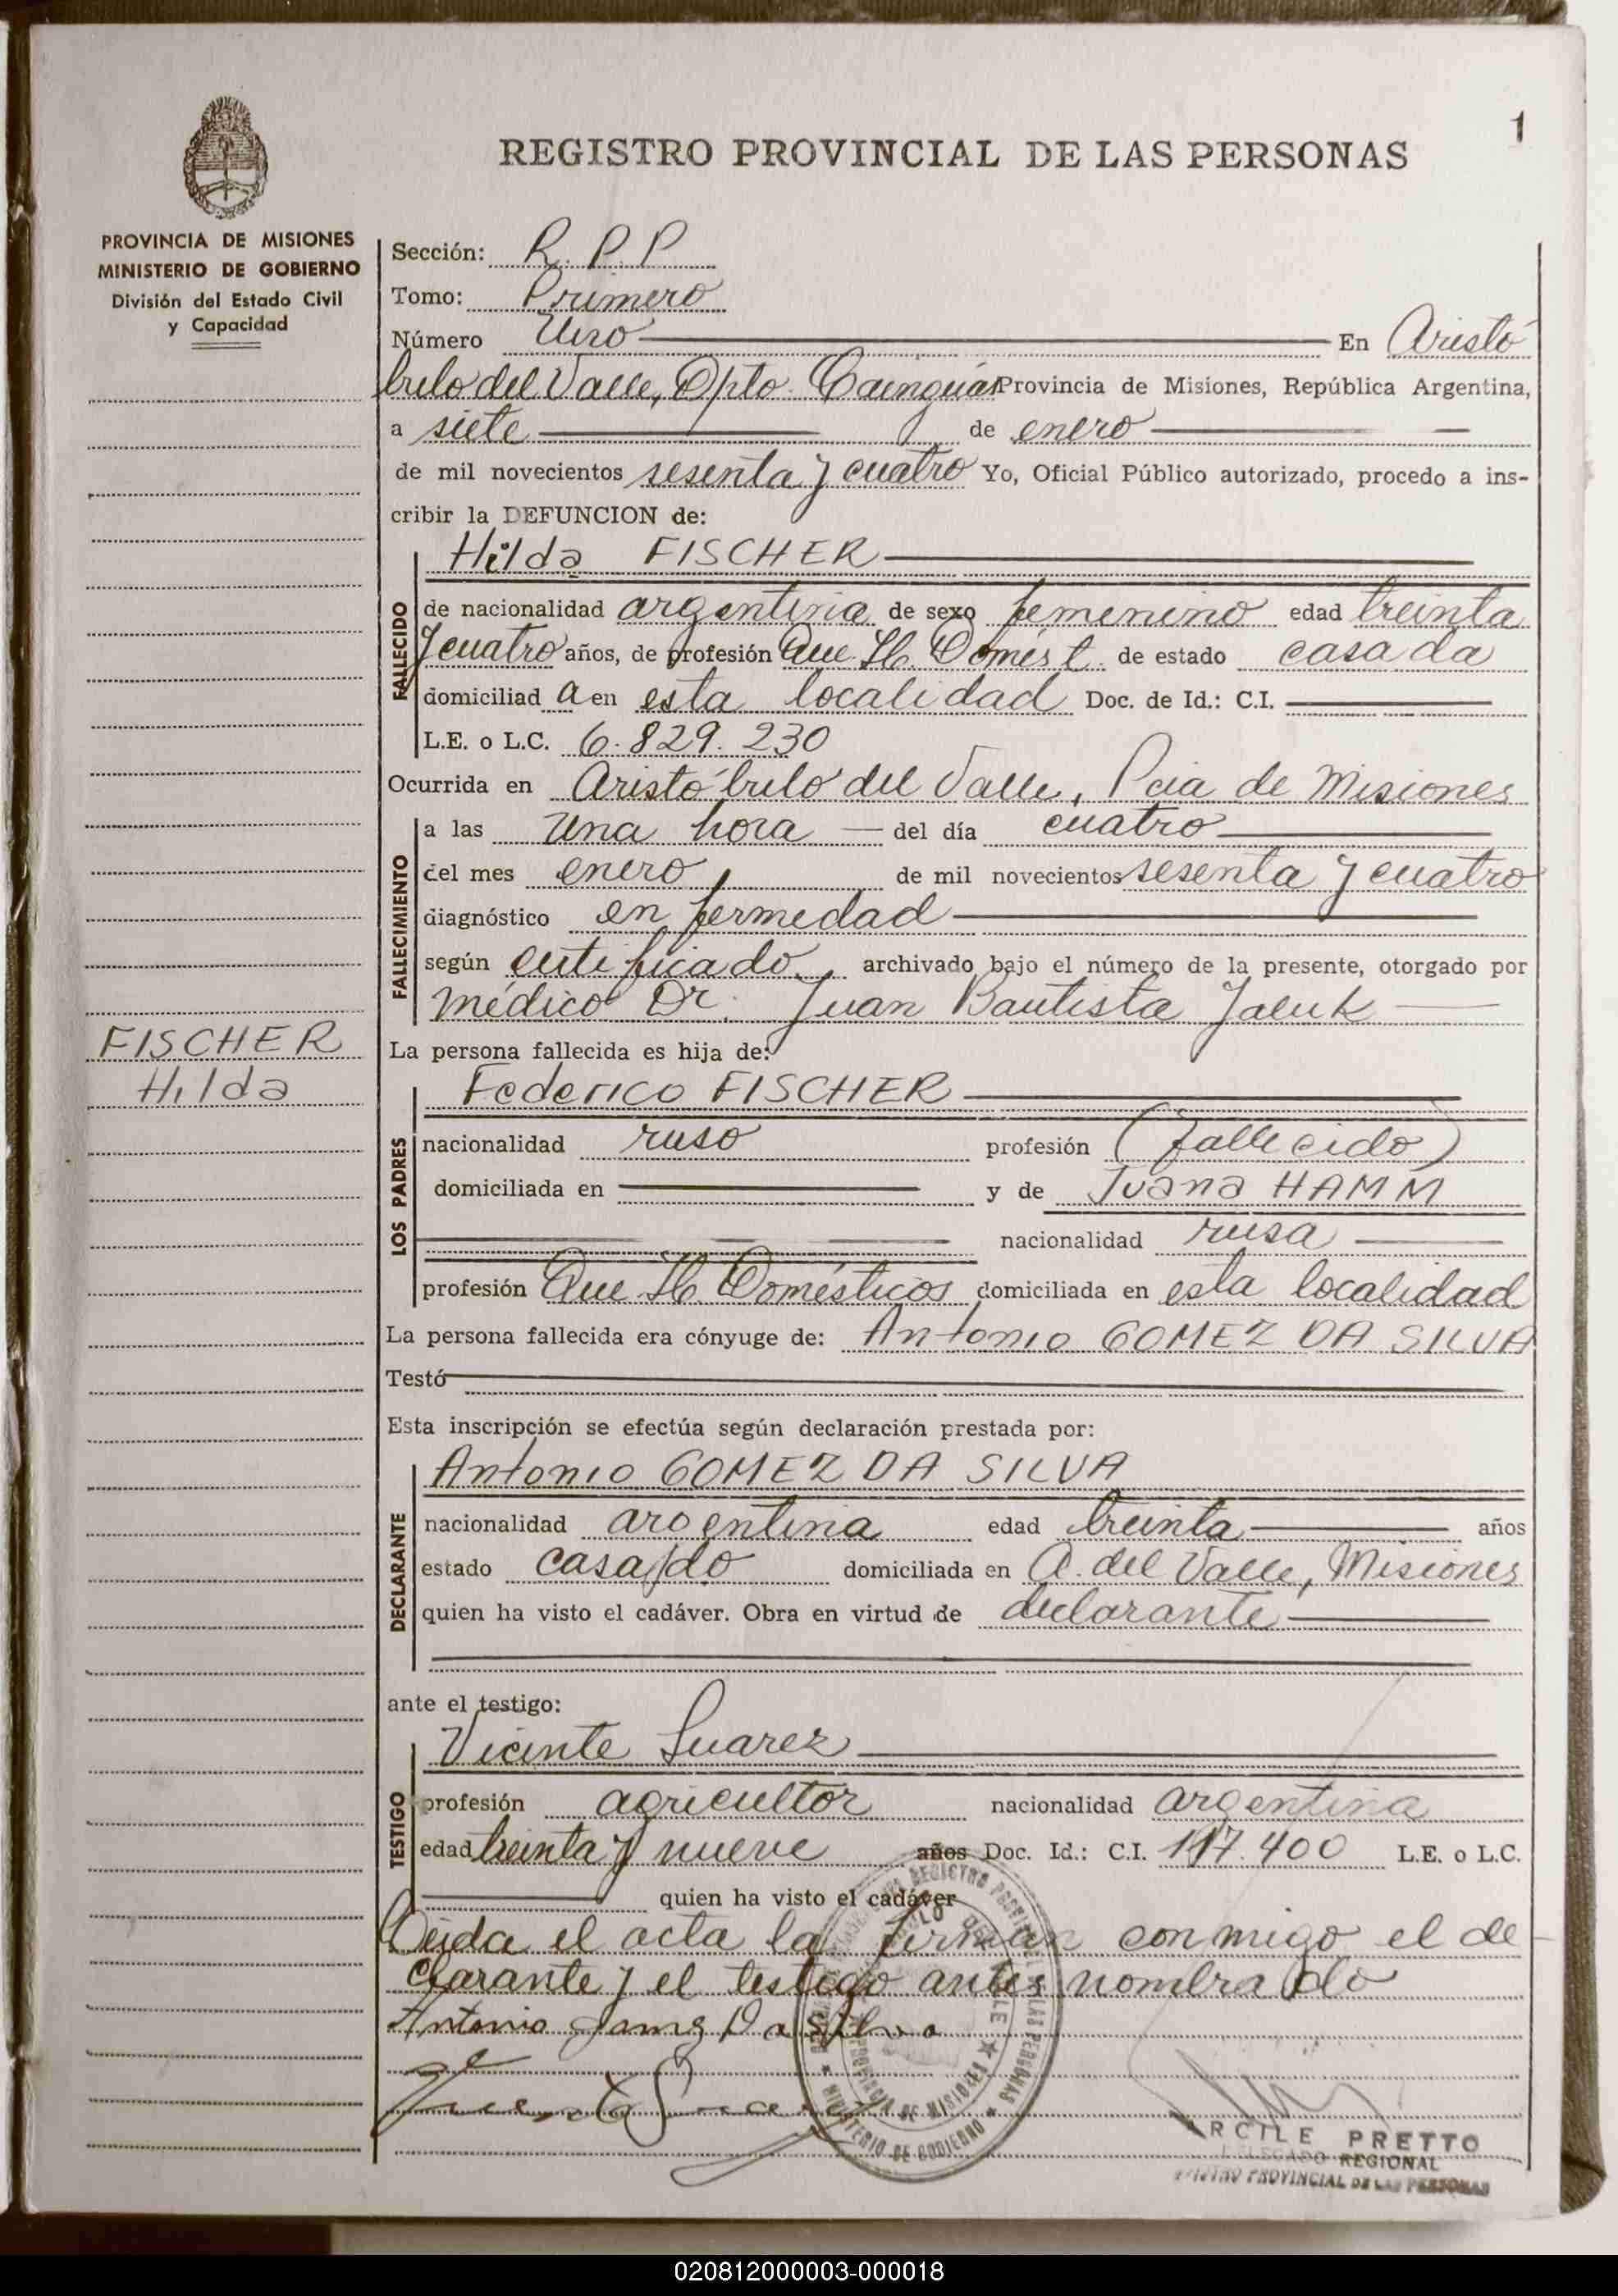 1
REGISTRO PROVINCIAL DE LAS PERSONAS
PROVINCIA DE MISIONES
MINISTERIO DE GOBIERNO
División del Estado Civil
y Capacidad
Sección: R. P. P
Tomo: Primero
Número Uno En Aristó
bulo del Valle, Dpto. Cainguás Provincia de Misiones, República Argentina,
a siete de enero
de mil novecientos sesenta y cuatro Yo, Oficial Público autorizado, procedo a ins-
cribir la DEFUNCION de:
Hilda FISCHER
FALLECIDO
de nacionalidad argentina de sexo femenino edad treinta
y cuatro años, de profesión Que. H. Domést. de estado casada
domiciliad a en esta localidad Doc. de Id.: C.I.
L.E. o L.C. 6.829.230
Ocurrida en Aristóbulo del Valle, Pcia de Misiones
FALLECIMIENTO
a las una hora del día cuatro
del mes enero de mil novecientos sesenta y cuatro
diagnóstico enfermedad
según certificado archivado bajo el número de la presente, otorgado por
médico Dr. Juan Bautista Jaluk
FISCHER
Hilda
La persona fallecida es hija de:
Federico FISCHER
LOS PADRES
nacionalidad ruso profesión (fallecido)
domiciliada en y de Juana HAMM
nacionalidad rusa
profesión Que H. Domésticos domiciliada en esta localidad
La persona fallecida era cónyuge de: Antonio GOMEZ DA SILVA
Testó
Esta inscripción se efectúa según declaración prestada por:
Antonio GOMEZ DA SILVA
DECLARANTE
nacionalidad argentina edad treinta años
estado casado domiciliada en A. del Valle, Misiones
quien ha visto el cadáver. Obra en virtud de declarante
ante el testigo:
Vicente Suarez
TESTIGO
profesión agricultor nacionalidad argentina
edad treinta y nueve años Doc. Id.: C.I. 117.400 L.E. o L.C.
quien ha visto el cadáver
Leida el acta la firman conmigo el de-
clarante y el testigo antes nombrado
Antonio Gomez Da Silva
REGISTRO PROVINCIAL DE LAS PERSONAS
PROVINCIA DE MISIONES
MINISTERIO DE GOBIERNO
PRETTO
DELEGADO REGIONAL
REGISTRO PROVINCIAL DE LAS PERSONAS
020812000003-000018